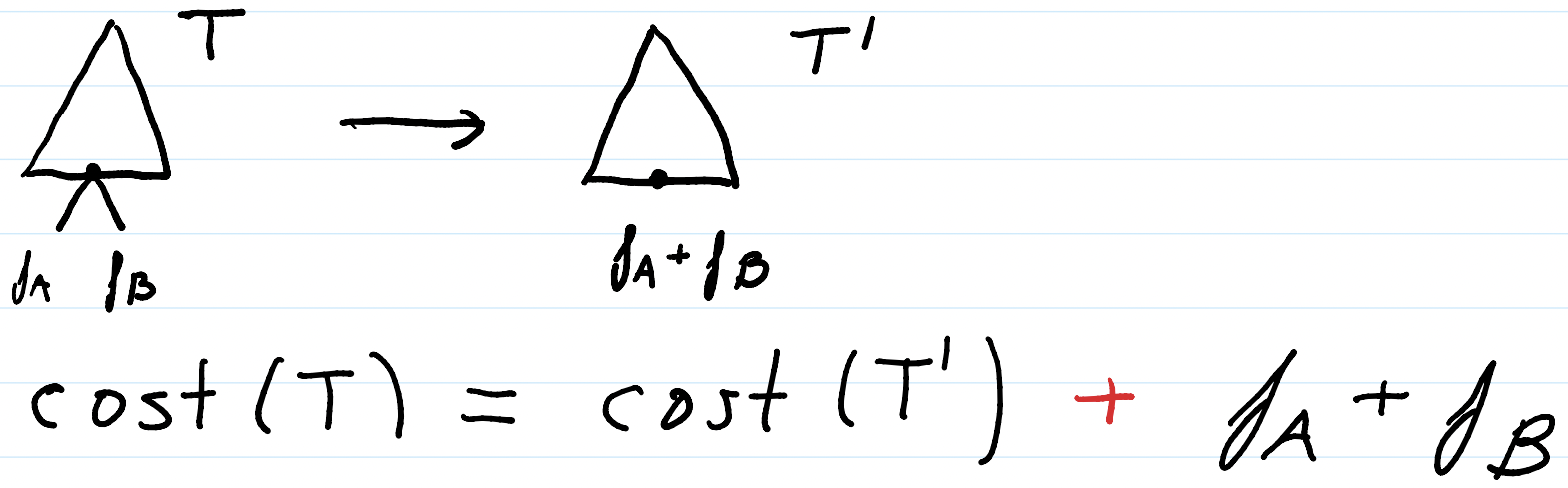 T T'
f_A f_B f_A + f_B
cost (T) = cost (T') + f_A + f_B